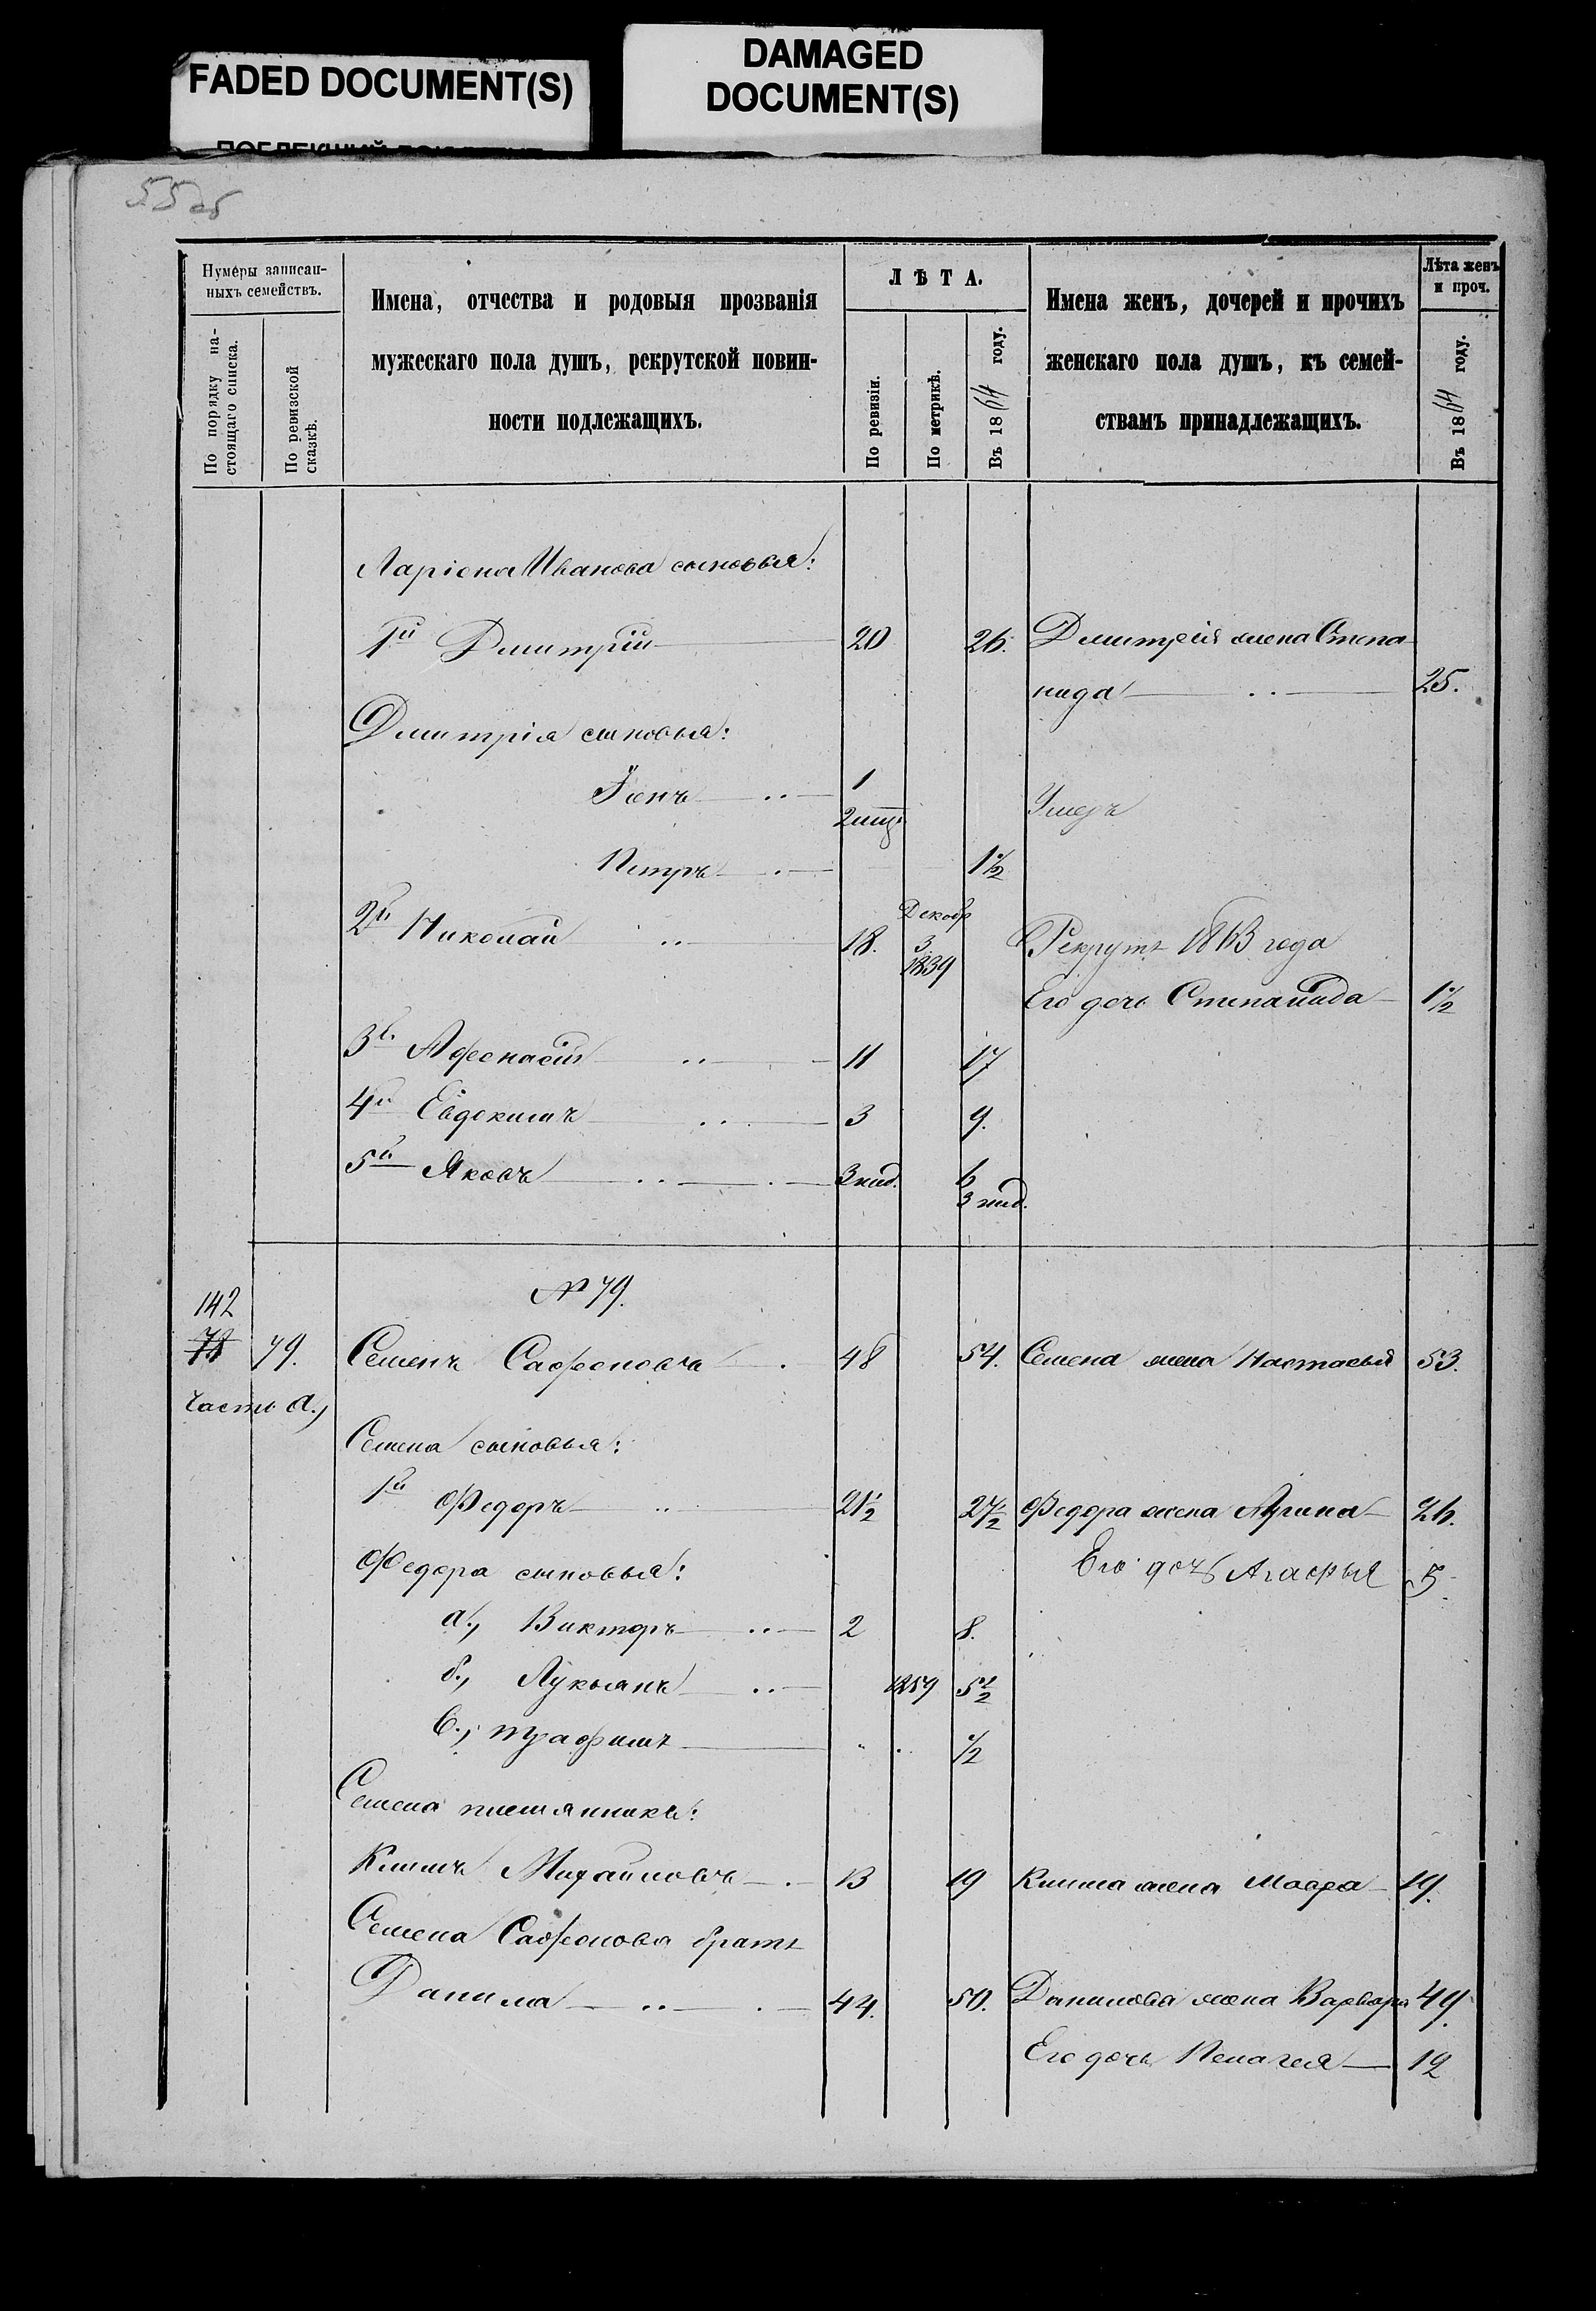 FADED DOCUMENT(S)
DAMAGED
DOCUMENT(S)
55 об
Нумеры записан-
ныхъ семействъ.
По порядку на-
стоящаго списка.
По ревизской
сказкѣ.
Имена, отчества и родовыя прозванія
мужескаго пола душъ, рекрутской повин-
ности подлежащихъ.
ЛѢТА.
По ревизіи.
По метрикѣ.
Въ 1864 году.
Имена женъ, дочерей и прочихъ
женскаго пола душъ, къ семей-
ствамъ принадлежащихъ.
Лѣта женъ
и проч.
Въ 1864 году.
Ларіона Иванова сыновья:
1й Дмитрій 20 26. Дмитрія жена Степа
нида 25.
Дмитрія сыновья:
1
2 мѣс. Умеръ
Петръ 1 1/2
2й Николай 18. Декабр 3 1839 Рекрутъ 1863 года
Его дочь Степанида 1 1/2
3й Афонасій 11 17
4й Евдокимъ 3 9.
5й Яковъ 3 нид. 6
3 нид.
№ 79.
142
78 79. Семенъ Сафоновъ 48 54. Семена жена Настасья 53.
часть а.,
Семена сыновья:
1й Федоръ 21 1/2 27 1/2 Федора жена Арина 26.
Федора сыновья: Его дочь Агафья 5
а., Викторъ 2 8.
б., Лукьянъ 1859 5 1/2
в., Трафимъ 1/2
Семена племянникъ:
Климъ Михайловъ 13 19 Клима жена Мавра 19.
Семена Сафонова братъ
Данила 44. 50. Данилова жена Варвара 49.
Его дочь Пелагея 12